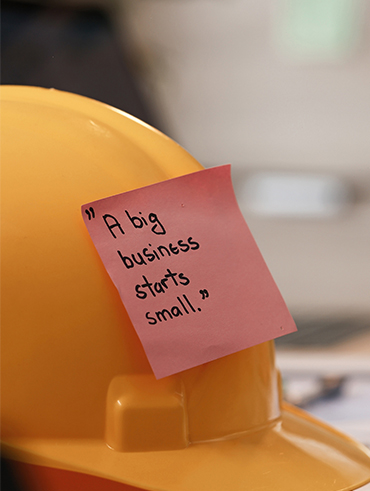 ”A big
business
starts
small.”